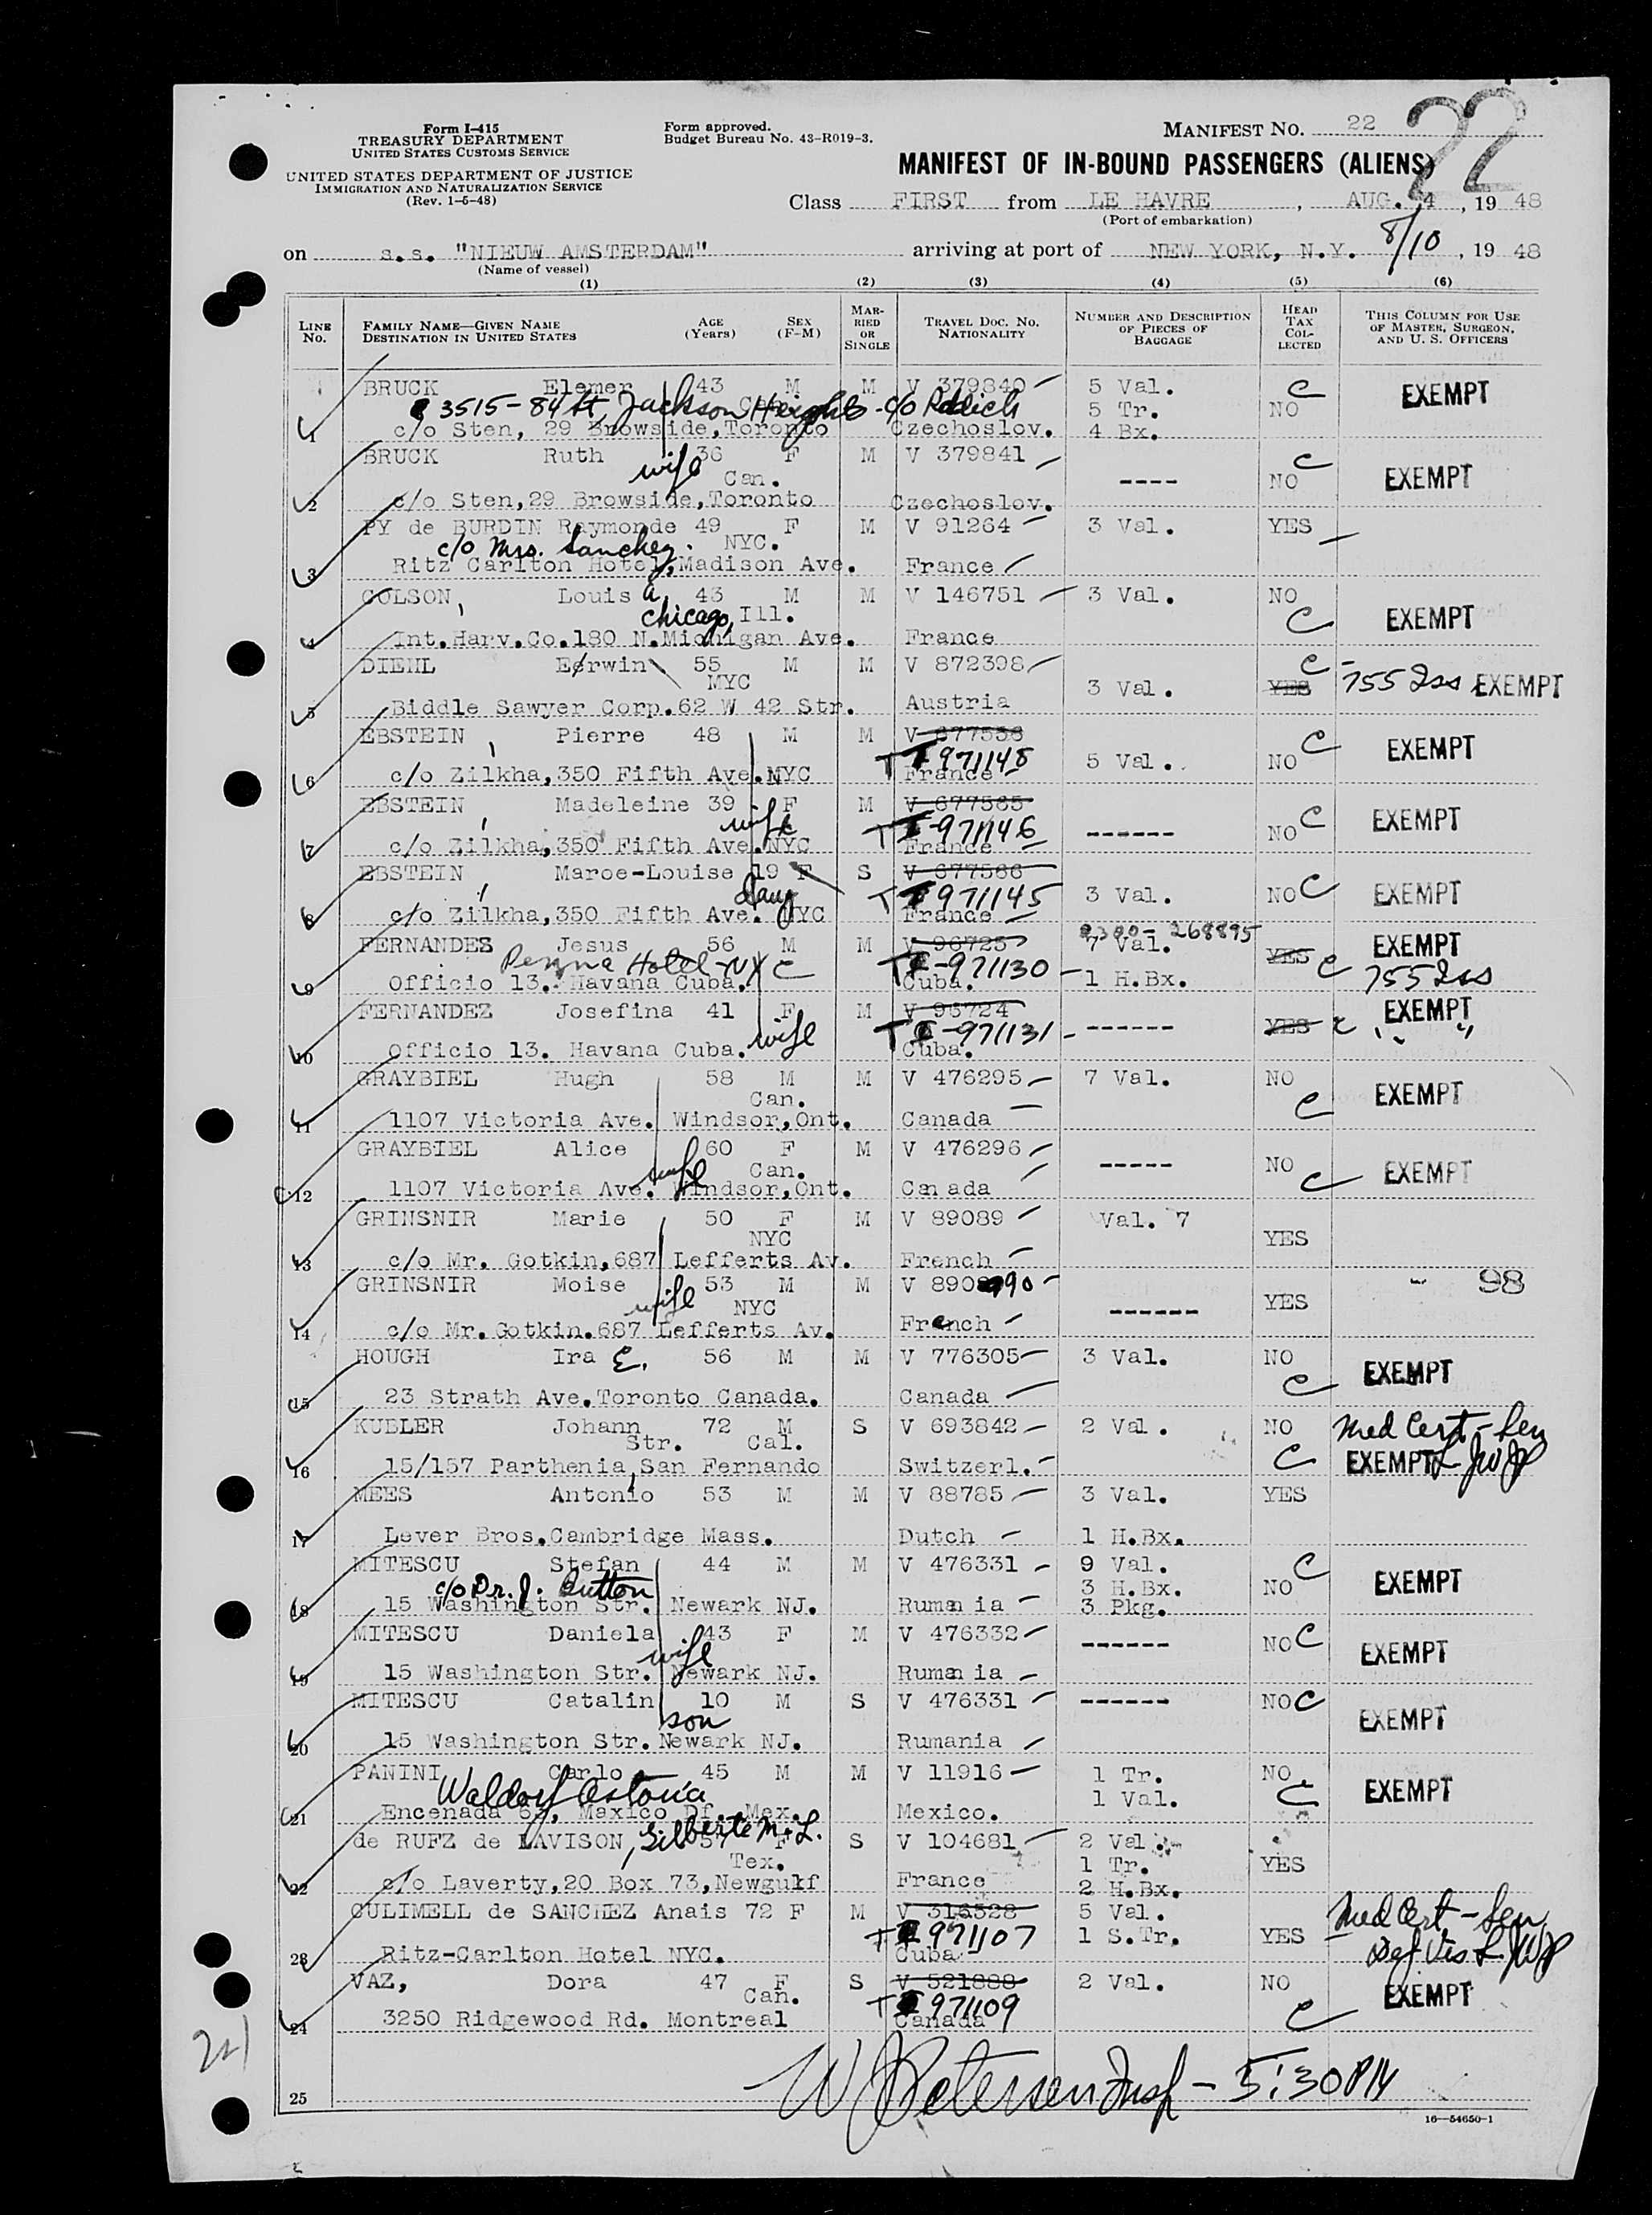 Form I-415
TREASURY DEPARTMENT
UNITED STATES CUSTOMS SERVICE
UNITED STATES DEPARTMENT OF JUSTICE
IMMIGRATION AND NATURALIZATION SERVICE
(Rev. 1-5-48)
Form approved.
Budget Bureau No. 43-R019-3.
MANIFEST NO. 22
22
MANIFEST OF IN-BOUND PASSENGERS (ALIENS)
Class FIRST from LE HAVRE, AUG. 4, 19 48
(Port of embarkation)
on s.s. "NIEUW AMSTERDAM" arriving at port of NEW YORK, N.Y. 8/10, 19 48
(Name of vessel)
(1) (2) (3) (4) (5) (6)
LINE No. FAMILY NAME—GIVEN NAME DESTINATION IN UNITED STATES AGE (Years) SEX (F-M) MARRIED OR SINGLE TRAVEL DOC. NO. NATIONALITY NUMBER AND DESCRIPTION OF PIECES OF BAGGAGE HEAD TAX COLLECTED THIS COLUMN FOR USE OF MASTER, SURGEON, AND U. S. OFFICERS
BRUCK Elemer 43 M M V 379840 5 Val. C EXEMPT
3515-84 St, Jackson Heights - c/o Can. 5 Tr. NO
1 c/o Sten, 29 Browside, Toronto Czechoslov. 4 Bx.
BRUCK Ruth 36 F M V 379841 C
wife Can. ---- NO EXEMPT
2 c/o Sten, 29 Browside, Toronto Czechoslov.
PY de BURDIN Raymonde 49 F M V 91264 3 Val. YES
c/o Mrs. Sanchez. NYC.
3 Ritz Carlton Hotel, Madison Ave. France
COLSON, Louis A. 43 M M V 146751 3 Val. NO
Chicago, Ill. C EXEMPT
4 Int. Harv. Co. 180 N. Michigan Ave. France
DIEHL Erwin 55 M M V 872398 C
MYC 3 Val. YES 755 Iss EXEMPT
5 Biddle Sawyer Corp. 62 W 42 Str. Austria
EBSTEIN, Pierre 48 M M V 677536
T 971148 5 Val. NO C EXEMPT
6 c/o Zilkha, 350 Fifth Ave. NYC France
EBSTEIN, Madeleine 39 F M V 677565
wife T 971146 ------ NO C EXEMPT
7 c/o Zilkha, 350 Fifth Ave. NYC France
EBSTEIN, Maroe-Louise 19 F S V 677566
dau T 971145 3 Val. NO C EXEMPT
8 c/o Zilkha, 350 Fifth Ave. NYC France
FERNANDES Jesus 56 M M V 96725 7 Val. 268895 YES C EXEMPT
Penna Hotel-NYC T 971130
9 Officio 13. Havana Cuba. Cuba. 1 H.Bx. 755 Iss
FERNANDEZ Josefina 41 F M V 96724 EXEMPT
wife T 971131 ------ YES C " "
10 Officio 13. Havana Cuba. Cuba.
GRAYBIEL Hugh 58 M M V 476295 7 Val. NO
Can. C EXEMPT
11 1107 Victoria Ave. Windsor, Ont. Canada
GRAYBIEL Alice 60 F M V 476296
wife Can. ----- NO C EXEMPT
12 1107 Victoria Ave. Windsor, Ont. Canada
GRINSNIR Marie 50 F M V 89089 Val. 7
NYC YES
13 c/o Mr. Gotkin, 687 Lefferts Av. French
GRINSNIR Moise 53 M M V 89090 98
wife NYC ------ YES
14 c/o Mr. Gotkin. 687 Lefferts Av. French
HOUGH Ira E. 56 M M V 776305 3 Val. NO
C EXEMPT
15 23 Strath Ave. Toronto Canada. Canada
KUBLER Johann 72 M S V 693842 2 Val. NO Med Cert - Sen
Str. Cal. C EXEMPT
16 15/157 Parthenia, San Fernando Switzerl.
MEES Antonio 53 M M V 88785 3 Val. YES
17 Lever Bros. Cambridge Mass. Dutch 1 H.Bx.
MITESCU Stefan 44 M M V 476331 9 Val. C
c/o Dr. J. Button 3 H.Bx. NO EXEMPT
18 15 Washington Str. Newark NJ. Rumania 3 Pkg.
MITESCU Daniela 43 F M V 476332
wife ------ NO C EXEMPT
19 15 Washington Str. Newark NJ. Rumania
MITESCU Catalin 10 M S V 476331 ------ NO C
son EXEMPT
20 15 Washington Str. Newark NJ. Rumania
PANINI Carlo 45 M M V 11916 1 Tr. NO
Waldorf Astoria 1 Val. C EXEMPT
21 Encenada 69, Mexico Df. Mex. Mexico.
de RUFZ de LAVISON, Gilberte M. L. 57 F S V 104681 2 Val.
Tex. 1 Tr. YES
22 c/o Laverty, 20 Box 73, Newgulf France 2 H.Bx.
CULIMELL de SANCHEZ Anais 72 F M V 316328 5 Val. Med Cert - Sen
T 971107 1 S.Tr. YES Def Vis
23 Ritz-Carlton Hotel NYC. Cuba
VAZ, Dora 47 F S V 521888 2 Val. NO
Can. T 971109 C EXEMPT
24 3250 Ridgewood Rd. Montreal Canada
25
W Petersen Insp - 5:30 PM
16—54650-1